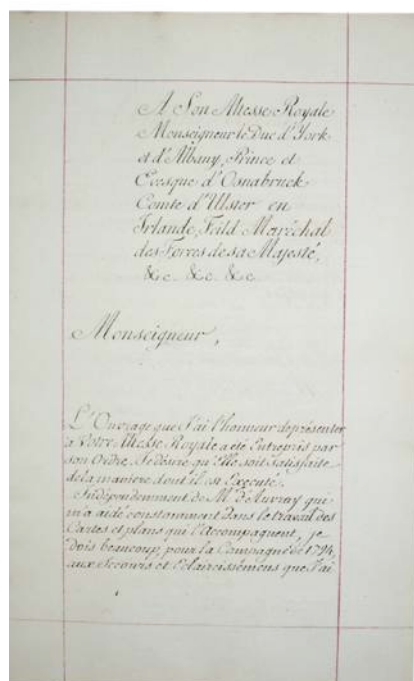 A Son Altesse Royale
Monseigneur le Duc d'York
et d'Albany, Prince et
Evesque d'Osnabruck
Comte d'Ulster en
Irlande, Feild Maréchal
des Forces de sa Majesté,
&c. &c. &c.
Monseigneur,
L'Ouvrage que J'ai l'honneur de présenter
à Votre Altesse Royale a été Entrepris par
son Ordre. Je désire qu'Elle soit Satisfaite
de la manière dont il est Executé.
Indépendamment de Mr. d'Auvray qui
m'a aidé constamment Dans le travail des
Cartes et plans qui l'Accompagnent, je
Dois beaucoup, pour la Campagne de 1794,
aux Secours et Eclaircissémens que J'ai